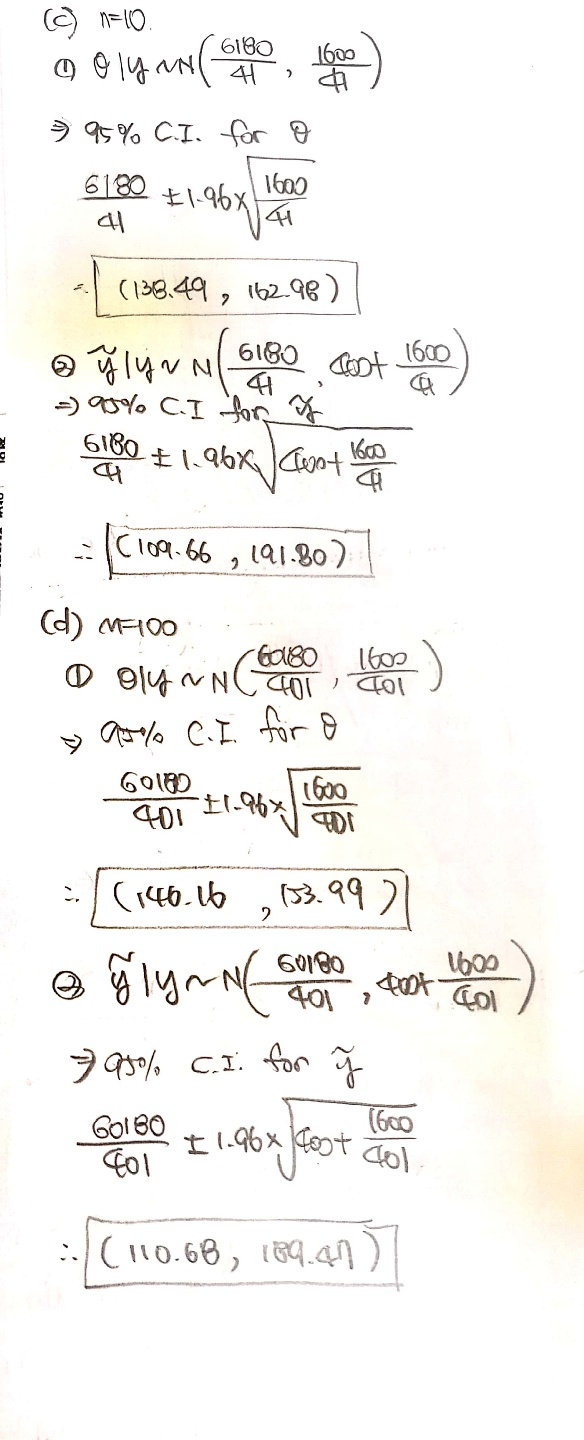 (c) n=10.
① θ|y ~ N(6180/41, 1600/41)
⇒ 95% C.I. for θ
6180/41 ±1.96×√(1600/41)
∴ (138.49, 162.98)
② ỹ|y ~ N(6180/41, 400+ 1600/41)
⇒ 95% C.I for ỹ
6180/41 ± 1.96×√(400+ 1600/41)
∴ (109.66, 191.80)
(d) n=100
① θ|y ~ N(60180/401, 1600/401)
⇒ 95% C.I. for θ
60180/401 ±1.96×√(1600/401)
∴ (146.16, 153.99)
② ỹ|y ~ N(60180/401, 400+ 1600/401)
⇒ 95% C.I. for ỹ
60180/401 ± 1.96×√(400+ 1600/401)
∴ (110.68, 189.47)